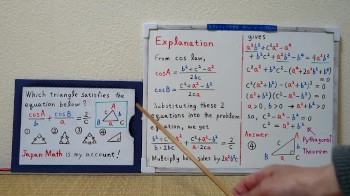 Which triangle satisfies the
equation below ?
cosA/b + cosB/a = 2/c
A
b
c
C
a
B
① ② ③ ④
Japan Math is my account !
Explanation
From cos law,
cosA = (b²+c²-a²)/2bc
cosB = (c²+a²-b²)/2ca
Substituting these 2
equations into the problem
equation, we get
(b²+c²-a²)/(b·2bc) + (c²+a²-b²)/(a·2ca) = 2/c
Multiply both sides by 2a²b²c
gives
a²b²+c²a²-a⁴
+b²c²+a²b²-b⁴=4a²b²
=0
=0
a>0, b>0 → a²+b²>0
so,
c²=a²+b²
Answer
④
Pythagorean
Theorem